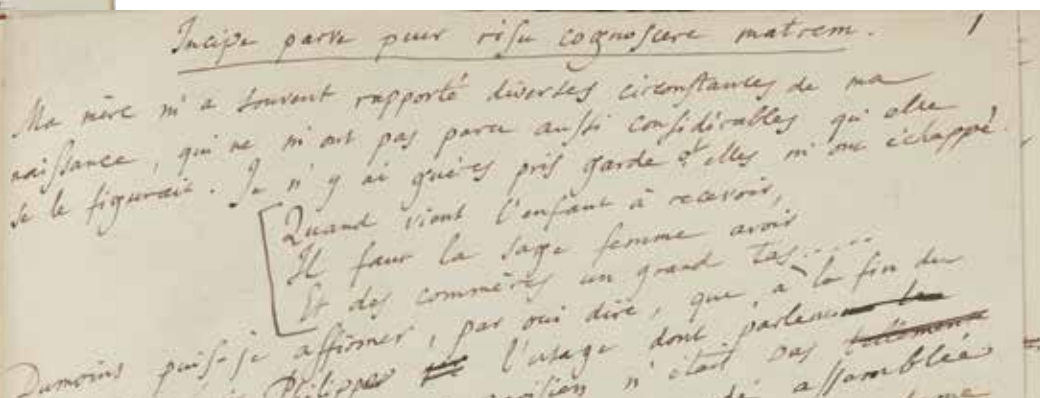 Incipe parve puer risu cognoscere matrem. 1
Ma mère m'a souvent rapporté diverses circonstances de ma
naissance, qui ne m'ont pas paru aussi considérables qu'elle
se le figurait. Je n'y ai guères pris garde & elles m'ont échappé.
Quand vient l'enfant à recevoir,
Il faut la sage femme avoir
Et des commères un grand tas.....
Dumoins puis-je affirmer, par oui dire, que, à la fin du
Philippe l'usage dont parle
parisien n'était pas tellement
assemblée